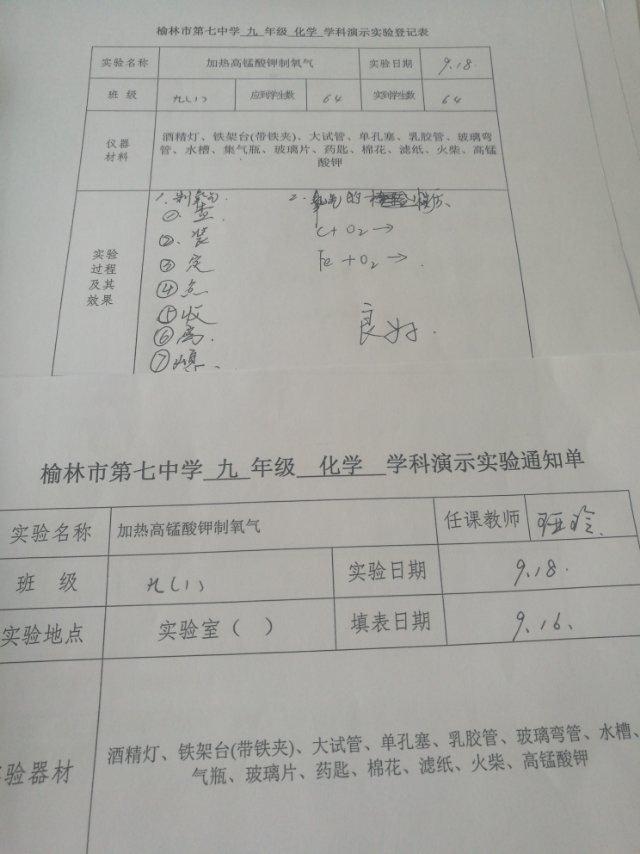 榆林市第七中学 九 年级 化学 学科演示实验登记表
实验名称 加热高锰酸钾制氧气 实验日期 9.18
班 级 九(1) 应到学生数 64 实到学生数 64
仪器
材料
酒精灯、铁架台(带铁夹)、大试管、单孔塞、乳胶管、玻璃弯
管、水槽、集气瓶、玻璃片、药匙、棉花、滤纸、火柴、高锰
酸钾
实验
过程
及其
效果
1. 制氧气. 2. 氧气的
①. 查.
②. 装
③ 定
④ 点
⑤ 收
⑥ 离.
⑦ 熄.
C+O₂→
Fe+O₂→.
良好.
榆林市第七中学 九 年级 化学 学科演示实验通知单
实验名称 加热高锰酸钾制氧气 任课教师
班 级 九(1) 实验日期 9.18.
实验地点 实验室( ) 填表日期 9.16、
验器材
酒精灯、铁架台(带铁夹)、大试管、单孔塞、乳胶管、玻璃弯管、水槽、
气瓶、玻璃片、药匙、棉花、滤纸、火柴、高锰酸钾